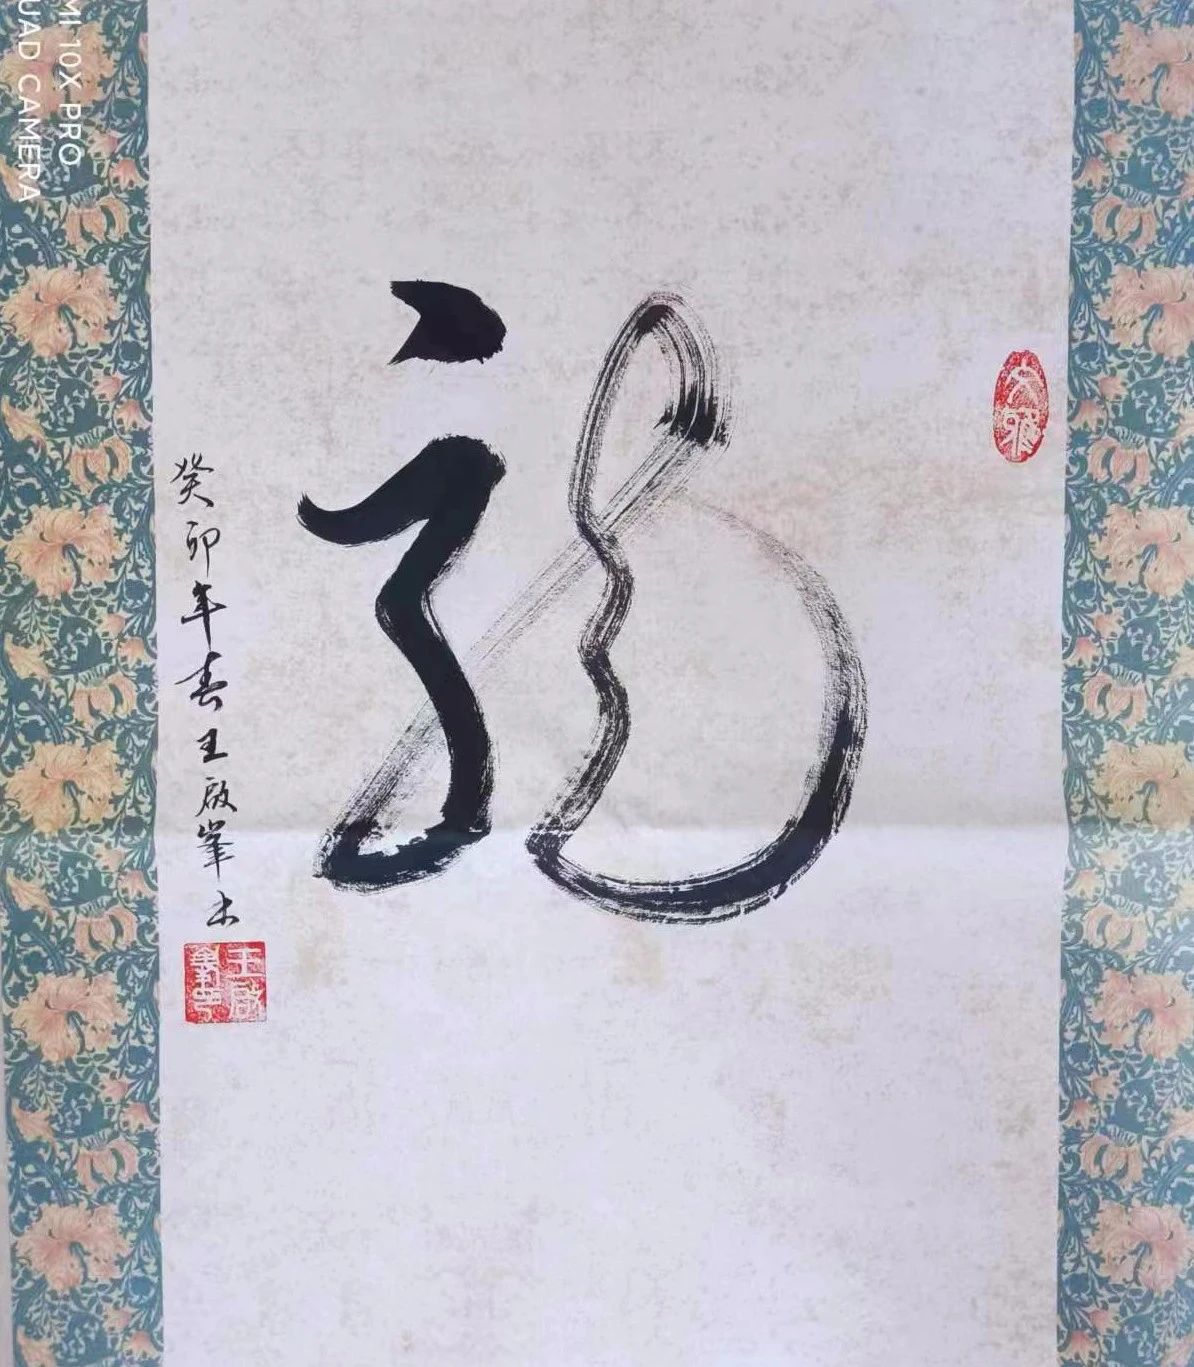 福
癸卯年春王啟峯书
王啟
峯印
MI 10X PRO
UAD CAMERA